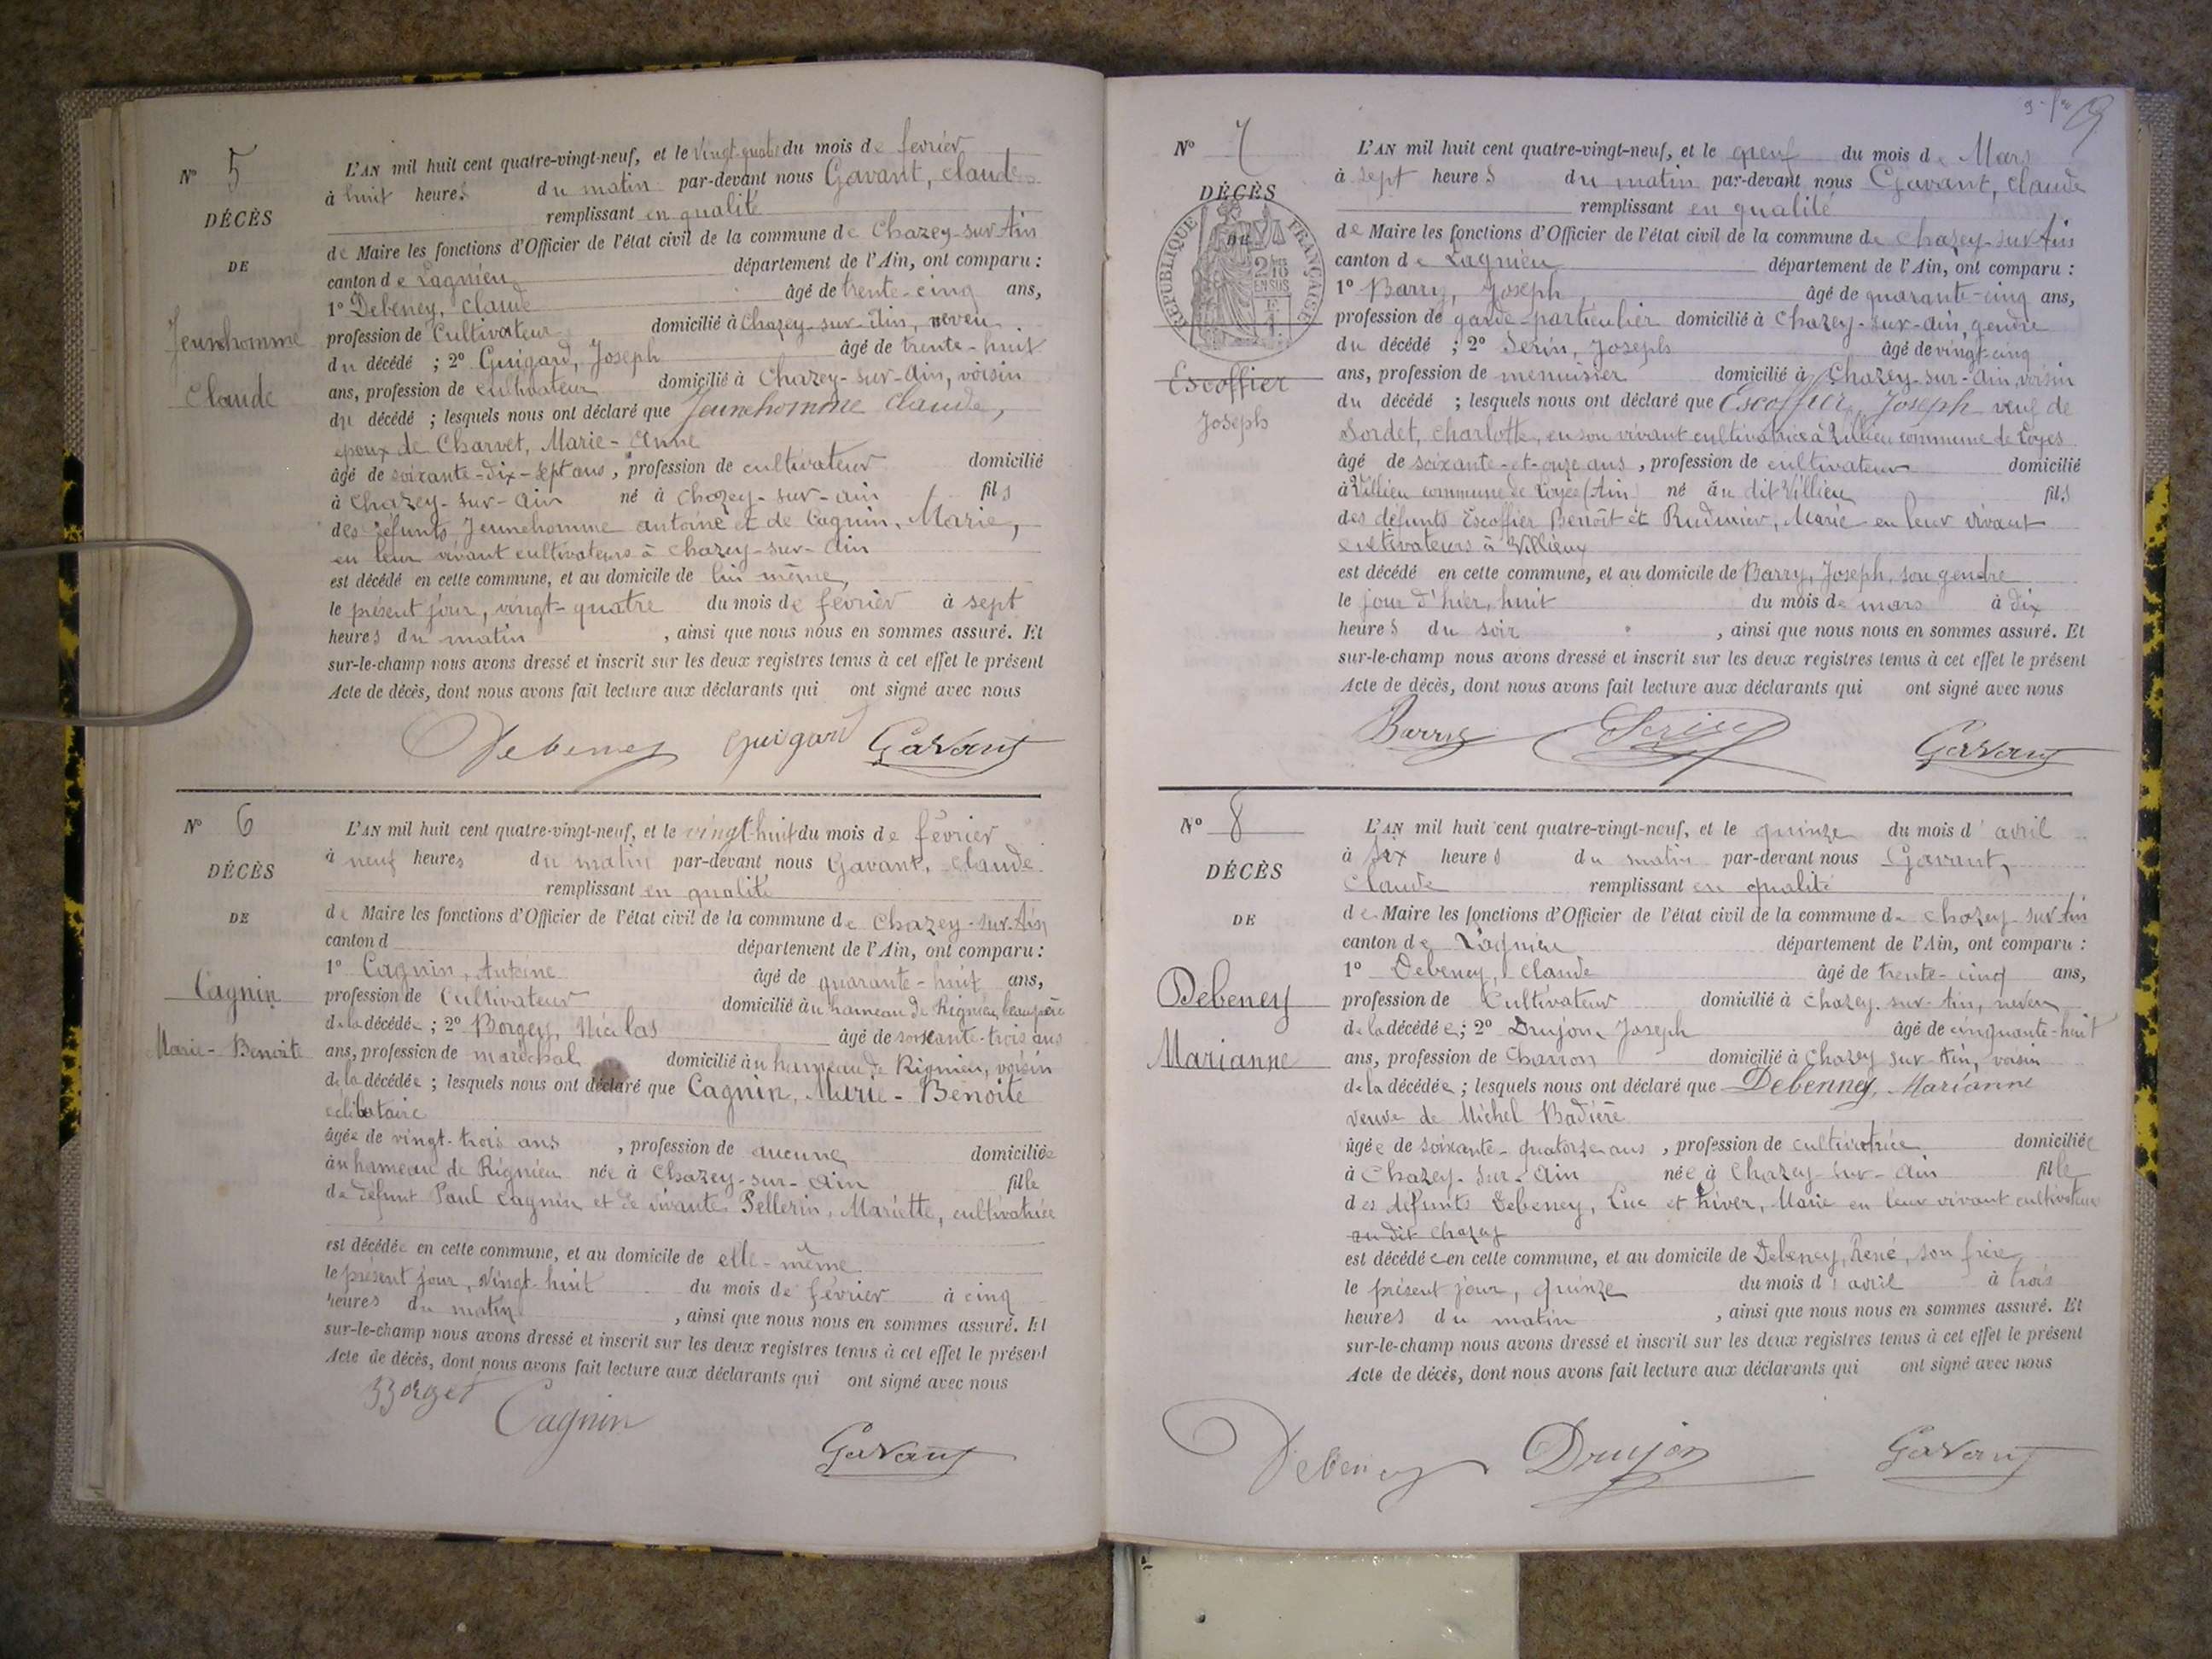 N° 5
DÉCÈS
DE
Jeunehomme
Claude
L'AN mil huit cent quatre-vingt-neuf, et le vingt-quatre du mois de février
à huit heures du matin par-devant nous Gavant, Claude
remplissant en qualité
de Maire les fonctions d'Officier de l'état civil de la commune de Chazey-sur-Ain
canton de Lagnieu département de l'Ain, ont comparu :
1° Debeney, Claude âgé de trente-cinq ans,
profession de Cultivateur domicilié à Chazey-sur-Ain, neveu
du décédé ; 2° Guigard, Joseph âgé de trente-huit
ans, profession de cultivateur domicilié à Chazey-sur-Ain, voisin
du décédé ; lesquels nous ont déclaré que Jeunehomme Claude,
époux de Charvet, Marie-Anne
âgé de soixante-dix-sept ans, profession de cultivateur domicilié
à Chazey-sur-Ain né à Chazey-sur-Ain fils
des défunts Jeunehomme antoine et de Cagnin, Marie,
en leur vivant cultivateurs à Chazey-sur-Ain
est décédé en cette commune, et au domicile de lui même,
le présent jour, vingt-quatre du mois de février à sept
heures du matin, ainsi que nous nous en sommes assuré. Et
sur-le-champ nous avons dressé et inscrit sur les deux registres tenus à cet effet le présent
Acte de décès, dont nous avons fait lecture aux déclarants qui ont signé avec nous
Debeney Guigard Gavant
N° 6
DÉCÈS
DE
Cagnin
Marie-Benoite
L'AN mil huit cent quatre-vingt-neuf, et le vingt-huit du mois de février
à neuf heures du matin par-devant nous Gavant, Claude
remplissant en qualité
de Maire les fonctions d'Officier de l'état civil de la commune de Chazey-sur-Ain
canton d département de l'Ain, ont comparu :
1° Cagnin, Antoine âgé de quarante-huit ans,
profession de Cultivateur domicilié au hameau de Rignieu, beau père
de la décédée ; 2° Borgey, Nicolas âgé de soixante-trois ans
ans, profession de maréchal domicilié au hameau de Rignieu, voisin
de la décédée ; lesquels nous ont déclaré que Cagnin, Marie-Benoite
célibataire
âgée de vingt-trois ans, profession de aucune domiciliée
au hameau de Rignieu née à Chazey-sur-Ain fille
de défunt Paul Cagnin et de vivante Pellerin, Mariette, cultivatrice
est décédée en cette commune, et au domicile de elle-même
le présent jour, vingt-huit du mois de février à cinq
heures du matin, ainsi que nous nous en sommes assuré. Et
sur-le-champ nous avons dressé et inscrit sur les deux registres tenus à cet effet le présent
Acte de décès, dont nous avons fait lecture aux déclarants qui ont signé avec nous
Borget Cagnin
Gavant
9
N° 7
DÉCÈS
RÉPUBLIQUE FRANÇAISE
Escoffier
Joseph
L'AN mil huit cent quatre-vingt-neuf, et le neuf du mois de Mars
à sept heures du matin par-devant nous Gavant, Claude
remplissant en qualité
de Maire les fonctions d'Officier de l'état civil de la commune de Chazey-sur-Ain
canton de Lagnieu département de l'Ain, ont comparu :
1° Barry, Joseph âgé de quarante-cinq ans,
profession de garde-particulier domicilié à Chazey-sur-Ain, gendre
du décédé ; 2° Serin, Joseph âgé de vingt-cinq
ans, profession de menuisier domicilié à Chazey-sur-Ain, voisin
du décédé ; lesquels nous ont déclaré que Escoffier, Joseph veuf de
Sordet, Charlotte, en son vivant cultivatrice à Villieu commune de Loyes
âgé de soixante-et-onze ans, profession de cultivateur domicilié
à Villieu commune de Loyes (Ain) né au dit Villieu fils
des défunts Escoffier Benoît et Rudinier, Marie en leur vivant
cultivateurs à Villieux
est décédé en cette commune, et au domicile de Barry, Joseph, son gendre
le jour d'hier, huit du mois de mars à dix
heures du soir, ainsi que nous nous en sommes assuré. Et
sur-le-champ nous avons dressé et inscrit sur les deux registres tenus à cet effet le présent
Acte de décès, dont nous avons fait lecture aux déclarants qui ont signé avec nous
Barry Serin Gavant
N° 8
DÉCÈS
DE
Debeney
Marianne
L'AN mil huit cent quatre-vingt-neuf, et le quinze du mois d'avril
à six heures du matin par-devant nous Gavant,
Claude remplissant en qualité
de Maire les fonctions d'Officier de l'état civil de la commune de Chazey-sur-Ain
canton de Lagnieu département de l'Ain, ont comparu :
1° Debeney, Claude âgé de trente-cinq ans,
profession de Cultivateur domicilié à Chazey-sur-Ain, neveu
de la décédée ; 2° Drujon Joseph âgé de cinquante-huit
ans, profession de Charron domicilié à Chazey sur-Ain, voisin
de la décédée ; lesquels nous ont déclaré que Debenney, Marianne
veuve de Michel Badière
âgée de soixante-quatorze ans, profession de cultivatrice domiciliée
à Chazey-sur-Ain née à Chazey-sur-Ain fille
des défunts Debeney, Luc et hiver, Marie en leur vivant cultivateur
au dit Chazey
est décédée en cette commune, et au domicile de Debeney, René, son frère
le présent jour, quinze du mois d'avril à trois
heures du matin, ainsi que nous nous en sommes assuré. Et
sur-le-champ nous avons dressé et inscrit sur les deux registres tenus à cet effet le présent
Acte de décès, dont nous avons fait lecture aux déclarants qui ont signé avec nous
Debeney Drujon Gavant